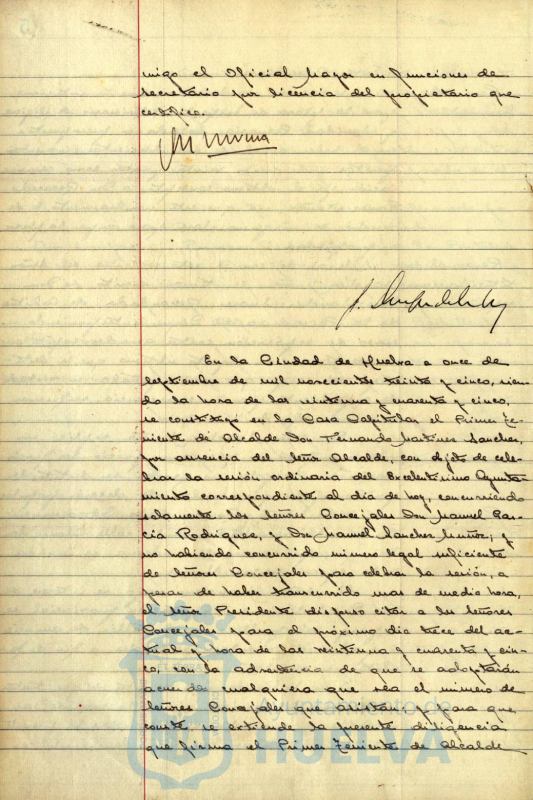 migo el Oficial Mayor en funciones de
secretario por licencia del propietario que
certifico.
En la Ciudad de Huelva a once de
Septiembre de mil novecientos treinta y cinco, sien-
do la hora de las veintiuna y cuarenta y cinco,
se constituyó en la Casa Capitular el Primer Te-
niente de Alcalde Don Fernando Martinez Sanchez,
por ausencia del Señor Alcalde, con objeto de cele-
brar la sesión ordinaria del Excelentísimo Ayunta-
miento correspondiente al día de hoy, concurriendo
solamente los Señores Concejales Don Manuel Gar-
cía Rodriguez, y Don Manuel Sanchez Muñoz, y
no habiendo concurrido número legal suficiente
de Señores Concejales para celebrar la sesión, a
pesar de haber transcurrido mas de media hora,
el Señor Presidente dispuso citar a los Señores
Concejales para el próximo dia trece del ac-
tual y hora de las veintiuna y cuarenta y cin-
co, con la advertencia de que se adoptarán
acuerdos cualquiera que sea el número de
Señores Concejales que asistan; y para que
conste se extiende la presente diligencia
que firma el Primer Teniente de Alcalde
Ayuntamiento de
HUELVA